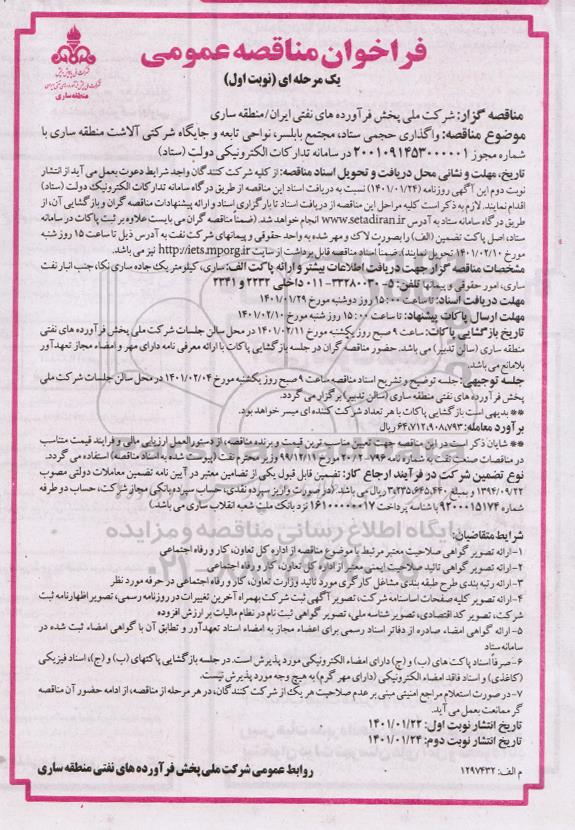 شرکت ملی پخش فرآورده های نفتی ایران
منطقه ساری
فراخوان مناقصه عمومی
یک مرحله ای (نوبت اول)
مناقصه گزار: شرکت ملی پخش فرآورده های نفتی ایران/منطقه ساری
موضوع مناقصه: واگذاری حجمی ستاد، مجتمع بابلسر، نواحی تابعه و جایگاه شرکتی آلاشت منطقه ساری با
شماره مجوز ۲۰۰۱۰۹۱۴۵۳۰۰۰۰۰۱ در سامانه تدارکات الکترونیکی دولت (ستاد)
تاریخ، مهلت و نشانی محل دریافت و تحویل اسناد مناقصه: از کلیه شرکت کنندگان واجد شرایط دعوت بعمل می آید از انتشار
نوبت دوم این آگهی روزنامه (۱۴۰۱/۰۱/۲۴) نسبت به دریافت اسناد این مناقصه از طریق درگاه سامانه تدارکات الکترونیک دولت (ستاد)
اقدام نمایند. لازم به ذکر است کلیه مراحل این مناقصه از دریافت اسناد تا بارگزاری اسناد و ارائه پیشنهادات مناقصه گران و بازگشایی آن، از
طریق درگاه سامانه ستاد به آدرس www.setadiran.ir انجام خواهد شد. (ضمناً مناقصه گران می بایست علاوه بر ثبت پاکات در سامانه
ستاد، اصل پاکت تضمین (الف) را بصورت لاک و مهر شده به واحد حقوقی و پیمانهای شرکت نفت به آدرس ذیل تا ساعت ۱۵ روز شنبه
مورخ ۱۴۰۱/۰۲/۱۰ تحویل نمایند). ضمناً اسناد مناقصه قابل برداشت از سایت http://iets.mporg.ir نیز می باشد.
مشخصات مناقصه گزار جهت دریافت اطلاعات بیشتر و ارائه پاکت الف: ساری، کیلومتر یک جاده ساری نکا، جنب انبار نفت
ساری، امور حقوقی و پیمانها تلفن: ۵-۳۳۲۸۰۰۳۰-۰۱۱ داخلی ۲۲۳۲ و ۲۳۴۱
مهلت دریافت اسناد: تا ساعت ۱۵:۰۰ روز دوشنبه مورخ ۱۴۰۱/۰۱/۲۹
مهلت ارسال پاکات پیشنهاد: تا ساعت ۱۵:۰۰ روز شنبه مورخ ۱۴۰۱/۰۲/۱۰
تاریخ بازگشایی پاکات: ساعت ۹ صبح روز یکشنبه مورخ ۱۴۰۱/۰۲/۱۱ در محل سالن جلسات شرکت ملی پخش فرآورده های نفتی
منطقه ساری (سالن تدبیر) می باشد. حضور مناقصه گران در جلسه بازگشایی پاکات با ارائه معرفی نامه دارای مهر و امضاء مجاز تعهدآور
بلامانع می باشد.
جلسه توجیهی: جلسه توضیح و تشریح اسناد مناقصه ساعت ۹ صبح روز یکشنبه مورخ ۱۴۰۱/۰۲/۰۴ در محل سالن جلسات شرکت ملی
پخش فرآورده های نفتی منطقه ساری (سالن تدبیر) برگزار می گردد.
** بدیهی است بازگشایی پاکات با هر تعداد شرکت کننده ای میسر خواهد بود.
برآورد معامله: ۶۴,۷۱۲,۹۰۸,۷۹۳ ریال
** شایان ذکر است در این مناقصه جهت تعیین مناسب ترین قیمت و برنده مناقصه، از دستورالعمل ارزیابی مالی و فرایند قیمت متناسب
در مناقصات صنعت نفت به شماره نامه ۷۹۶-۲۰/۲ مورخ ۹۹/۱۲/۱۱ وزیر محترم نفت (پیوست شده به اسناد مناقصه) استفاده می گردد.
نوع تضمین شرکت در فرآیند ارجاع کار: تضمین قابل قبول یکی از تضامین معتبر در آیین نامه تضمین معاملات دولتی مصوب
۱۳۹۴/۰۹/۲۲ و بمبلغ ۳,۲۳۵,۶۴۵,۴۴۰ ریال می باشد. (در صورت واریز سپرده نقدی، حساب سپرده بانکی مجاز شرکت، حساب دو طرفه
شماره ۹۲۰۰۰۱۵۱۷۴ با شناسه پرداخت ۱۶۱۰۰۰۰۰۰۱۷ نزد بانک ملت شعبه انقلاب ساری می باشد.)
شرایط متقاضیان:
۱- ارائه تصویر گواهی صلاحیت معتبر مرتبط با موضوع مناقصه از اداره کل تعاون، کار و رفاه اجتماعی
۲- ارائه تصویر گواهی تائید صلاحیت ایمنی معتبر از اداره کل تعاون، کار و رفاه اجتماعی
۳- ارائه رتبه بندی طرح طبقه بندی مشاغل کارگری مورد تائید وزارت تعاون، کار و رفاه اجتماعی در حرفه مورد نظر
۴- ارائه تصویر کلیه صفحات اساسنامه شرکت، تصویر آگهی ثبت شرکت بهمراه آخرین تغییرات در روزنامه رسمی، تصویر اظهارنامه ثبت
شرکت، تصویر کد اقتصادی، تصویر شناسه ملی، تصویر گواهی ثبت نام در نظام مالیات بر ارزش افزوده
۵- ارائه گواهی امضاء صادره از دفاتر اسناد رسمی برای اعضاء مجاز به امضاء اسناد تعهدآور و تطابق آن با گواهی امضاء ثبت شده در
سامانه ستاد
۶- صرفاً اسناد پاکت های (ب) و (ج) دارای امضاء الکترونیکی مورد پذیرش است. در جلسه بازگشایی پاکتهای (ب) و (ج)، اسناد فیزیکی
(کاغذی) و اسناد فاقد امضاء الکترونیکی (دارای مهر گرم) به هیچ وجه مورد پذیرش نیست.
۷- در صورت استعلام مراجع امنیتی مبنی بر عدم صلاحیت هر یک از شرکت کنندگان، در هر مرحله از مناقصه، از ادامه حضور آن مناقصه
گر ممانعت بعمل می آید.
تاریخ انتشار نوبت اول: ۱۴۰۱/۰۱/۲۲
تاریخ انتشار نوبت دوم: ۱۴۰۱/۰۱/۲۴
م الف: ۱۲۹۷۴۳۲
روابط عمومی شرکت ملی پخش فرآورده های نفتی منطقه ساری